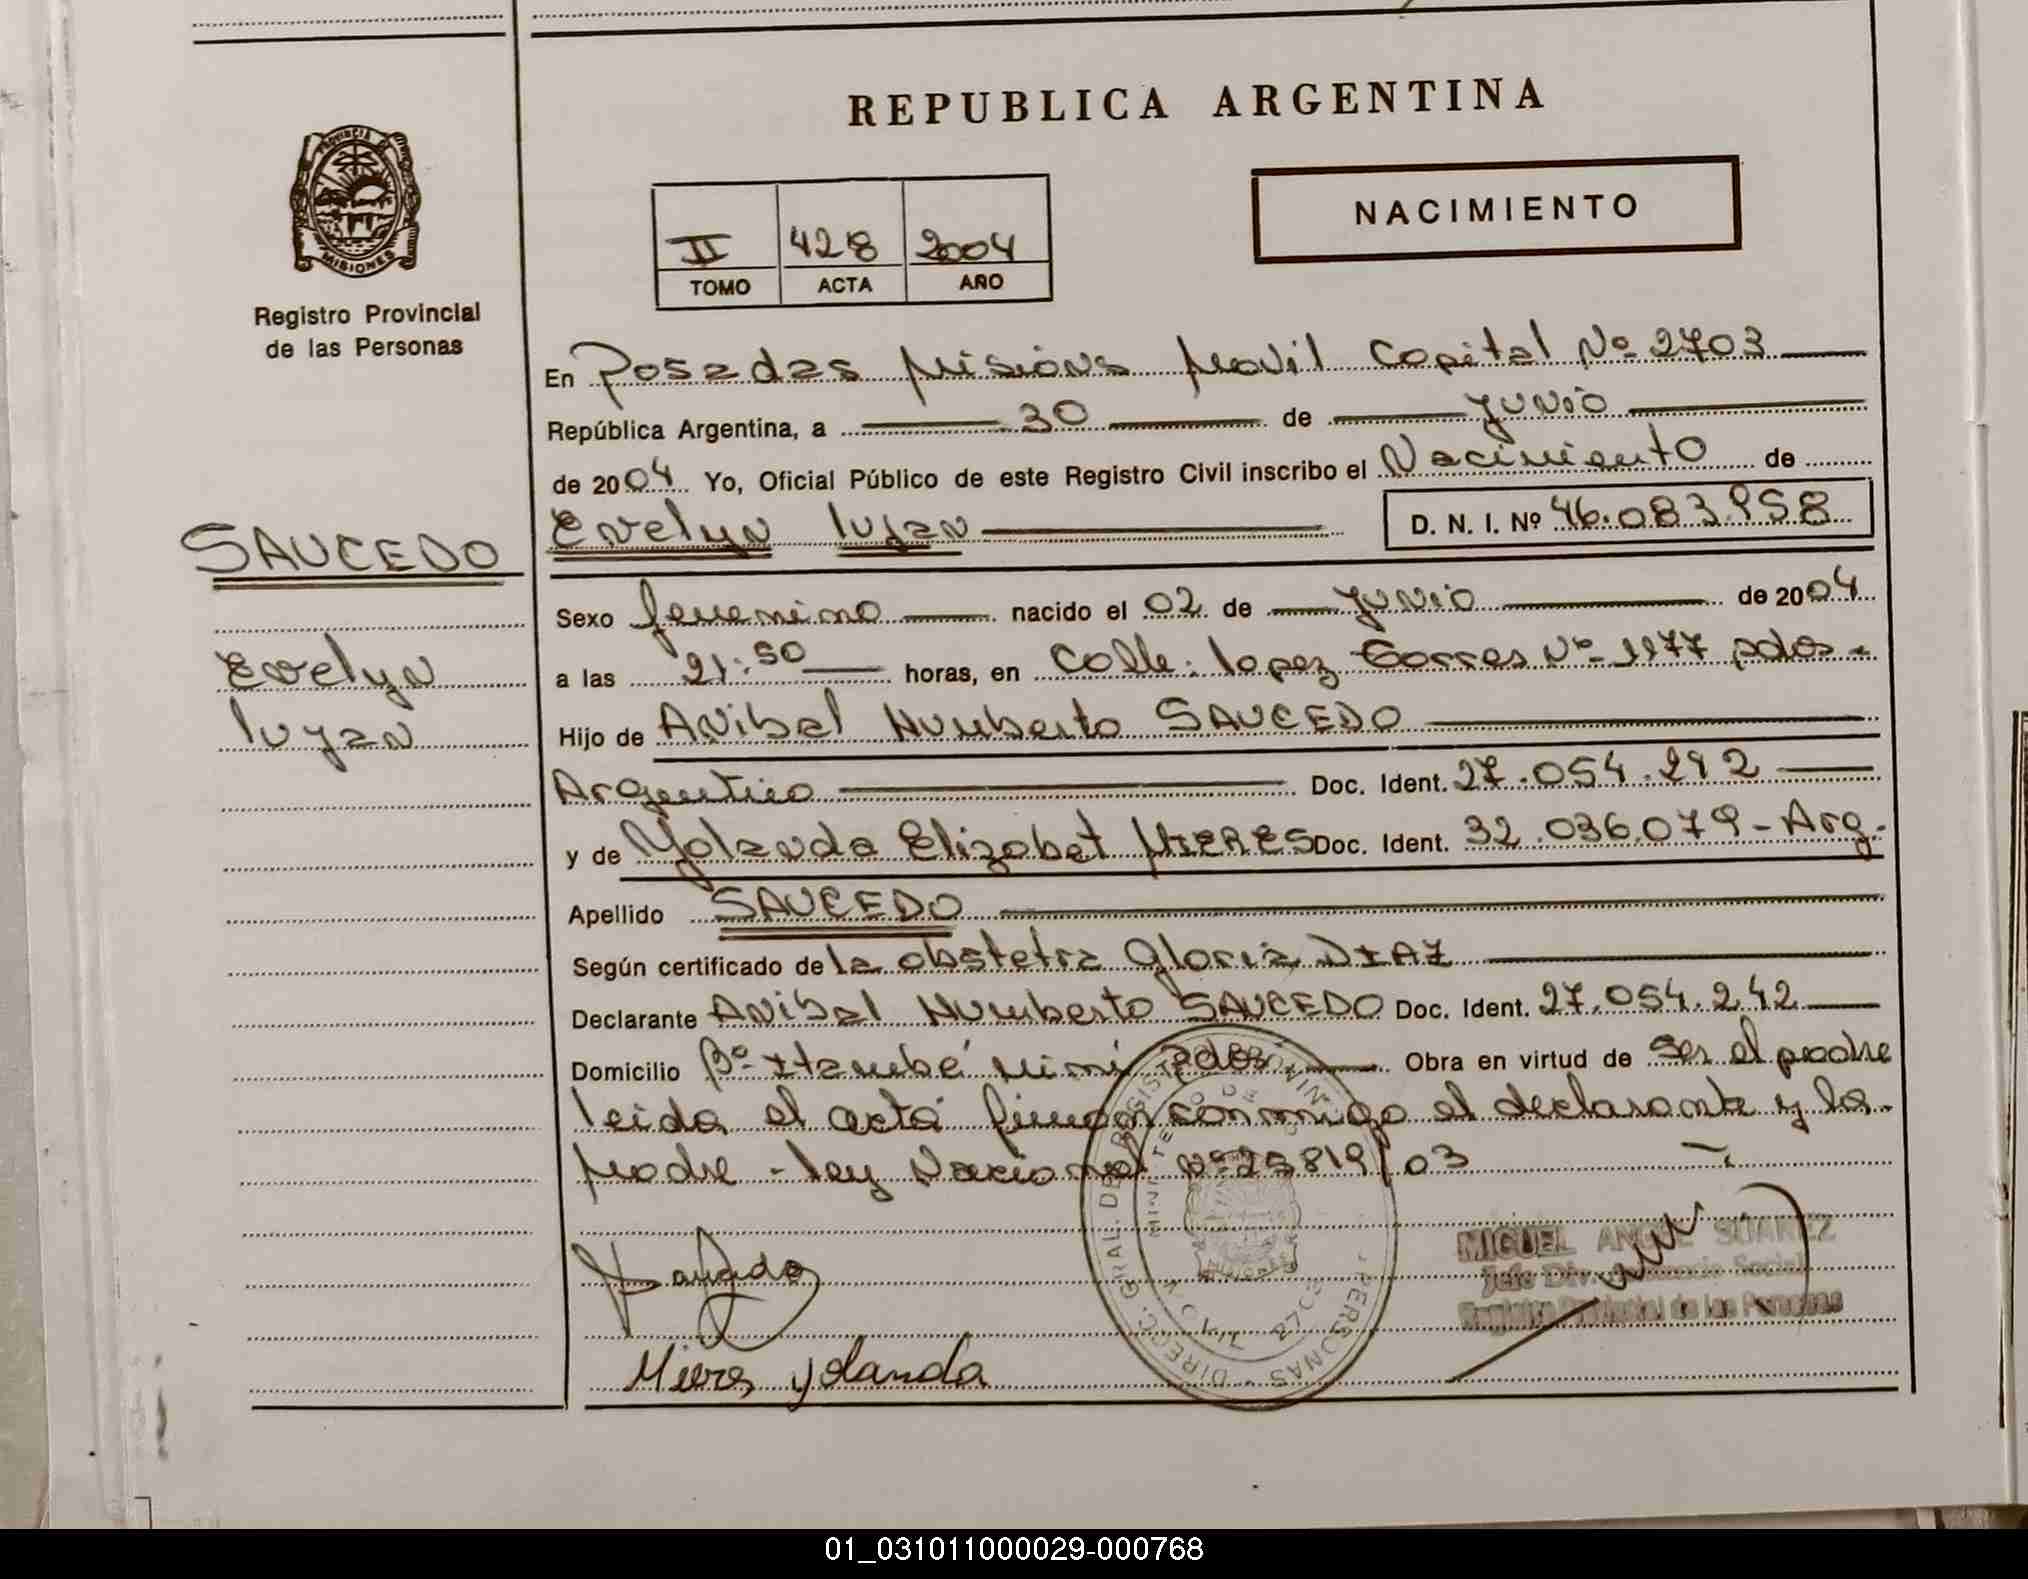 REPUBLICA ARGENTINA
PROVINCIA DE
MISIONES
Registro Provincial
de las Personas
NACIMIENTO
II 428 2004
TOMO ACTA AÑO
En Posadas Misiones Movil Capital Nº 2703
República Argentina, a 30 de junio
de 2004 Yo, Oficial Público de este Registro Civil inscribo el Nacimiento de
SAUCEDO
Evelyn lujan D. N. I. Nº 46.083.958
Sexo femenino nacido el 02 de junio de 2004
Evelyn
lujan
a las 21:50 horas, en Calle: lopez torres Nº 1177 pdas.
Hijo de Anibal Humberto SAUCEDO
Argentino Doc. Ident. 27.054.242
y de Yolanda Elizabet MIERES Doc. Ident. 32.036.079 - Arg.
Apellido SAUCEDO
Según certificado de la obstetra Gloria DIAZ
Declarante Anibal Humberto SAUCEDO Doc. Ident. 27.054.242
Domicilio Bº Itaembé mimi pdas. Obra en virtud de ser el padre
leida el acta firman conmigo el declarante y la
Madre - ley Nacional Nº 25819/03
MIGUEL SUAREZ
Jefe Div. Social
Registro Provincial de las Personas
Mieres yolanda
01_031011000029-000768